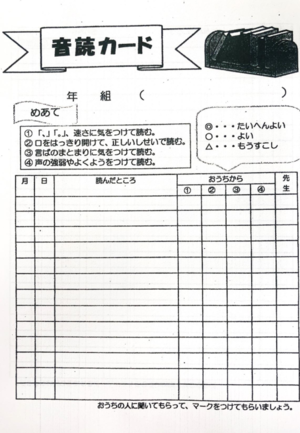 音読カード
年 組（ ）
めあて
① 「、」「。」、速さに気をつけて読む。
② 口をはっきり開けて、正しいしせいで読む。
③ 言ばのまとまりに気をつけて読む。
④ 声の強弱やよくようをつけて読む。
◎・・・たいへんよい
○・・・よい
△・・・もうすこし
月 日 読んだところ おうちから 先生
① ② ③ ④
おうちの人に聞いてもらって、マークをつけてもらいましょう。